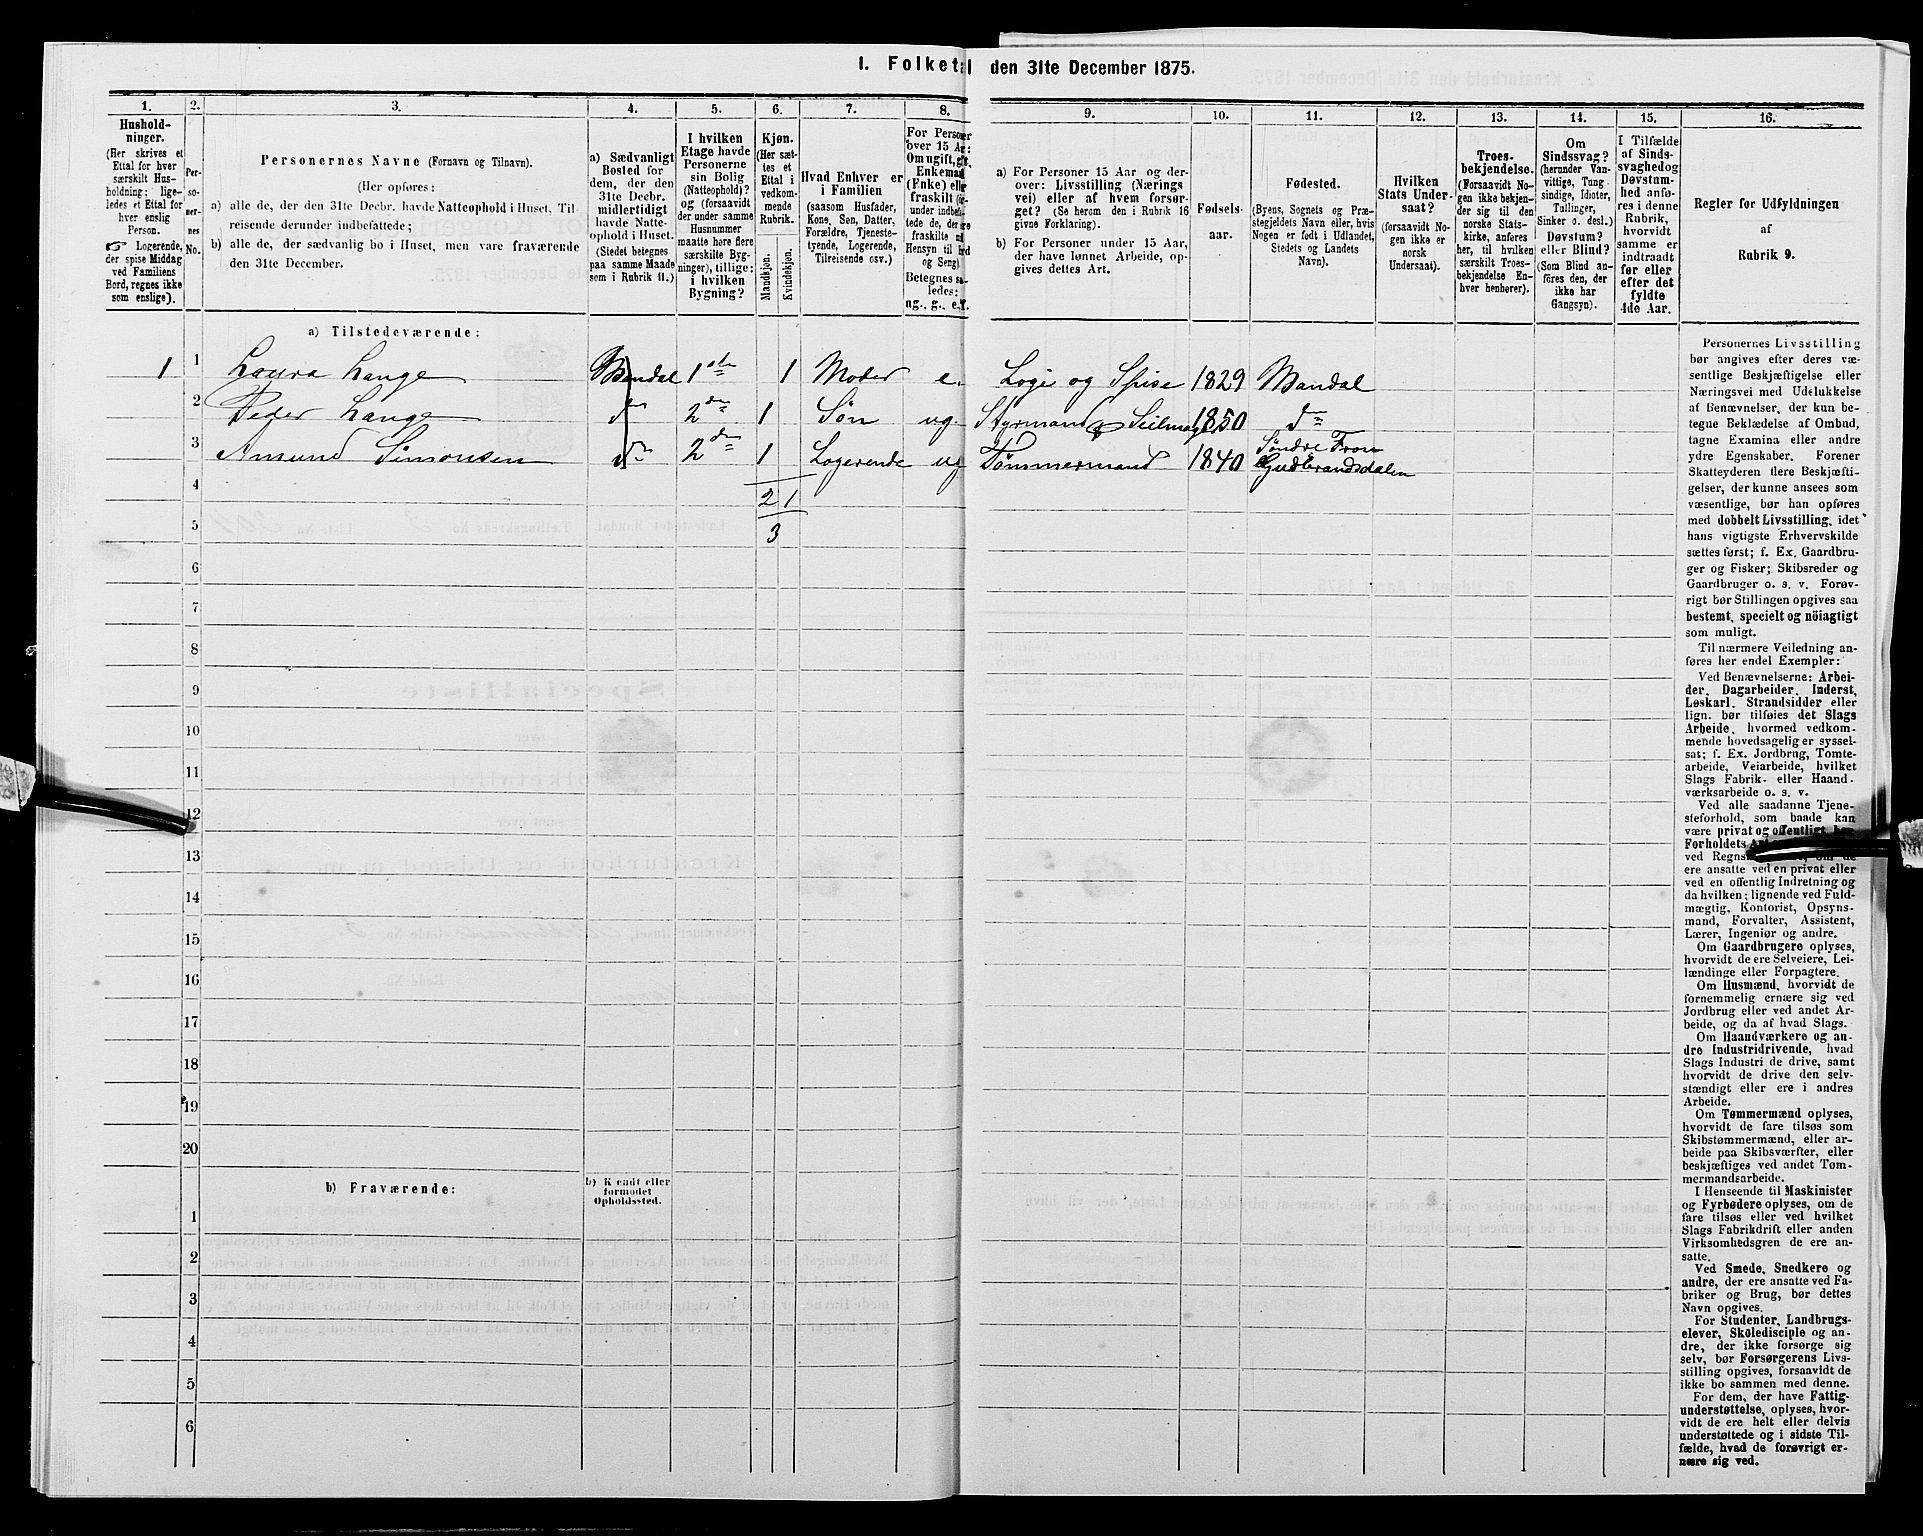 I. Folketal den 31te December 1875.
1. 2. 3. 4. 5. 6. 7. 8. 9. 10. 11. 12. 13. 14. 15. 16.
Hushold-
ninger.
(Her skrives et
Ettal for hver
særskilt Hus-
holdning; lige-
ledes et Ettal for
hver enslig
Person.
☞ Logerende,
der spise Middag
ved Familiens
Bord, regnes ikke
som enslige).
Per-
so-
ner-
nes
No.
Personernes Navne (Fornavn og Tilnavn).
(Her opføres:
a) alle de, der den 31te Decbr. havde Natteophold i Huset, Til-
reisende derunder indbefattede;
b) alle de, der sædvanlig bo i Huset, men vare fraværende
den 31te December.
a) Sædvanligt
Bosted for
dem, der den
31te Decbr.
midlertidigt
havde Natte-
ophold i Huset.
(Stedet betegnes
paa samme Maade
som i Rubrik 11.)
I hvilken
Etage havde
Personerne
sin Bolig
(Natteophold)?
og (forsaavidt
der under samme
Husnummer
maatte høre flere
særskilte Byg-
ninger), tillige:
i hvilken
Bygning?
Kjøn.
(Her sæt-
tes et
Ettal i
vedkom-
mende
Rubrik.
Mandkjøn.
Kvindekjøn.
Hvad Enhver er
i Familien
(saasom Husfader,
Kone, Søn, Datter,
Forældre, Tjeneste-
tyende, Logerende,
Tilreisende osv.)
For Personer
over 15 Aar:
Om ugift, gift,
Enkemand
(Enke) eller
fraskilt
Betegnes saa-
ledes:
ug., g., e., f.
a) For Personer 15 Aar og der-
over: Livsstilling (Nærings
vei) eller af hvem forsør-
get? (Se herom den i Rubrik 16
givne Forklaring).
b) For Personer under 15 Aar,
der have lønnet Arbeide, op-
gives dettes Art.
Fødsels-
aar.
Fødested.
(Byens, Sognets og Præ-
stegjeldets Navn eller, hvis
Nogen er født i Udlandet,
Stedets og Landets
Navn).
Hvilken
Stats Under-
saat?
(forsaavidt No-
gen ikke er
norsk
Undersaat).
Troes-
bekjendelse.
(Forsaavidt No-
gen ikke bekjen-
der sig til den
norske Stats-
kirke, anføres
her, til hvilken
særskilt Troes-
bekjendelse En-
hver henhører).
Om
Sindssvag?
(herunder Van-
vittige, Tung-
sindige, Idioter,
Tullinger,
Sinker o. desl.)
Døvstum?
eller Blind?
(Som Blind an-
føres den, der
ikke har
Gangsyn).
I Tilfælde
af Sinds-
svaghed og
Døvstum-
hed anfø-
res i denne
Rubrik,
hvorvidt
samme er
indtraadt
før eller
efter det
fyldte
4de Aar.
Regler for Udfyldningen
af
Rubrik 9.
a) Tilstedeværende:
1 1 Laura Lange Mandal 1ste 1 Moder e. Logi og Spise 1829 Mandal
2 Peder Lange do 2den 1 Søn ug. Styrmand & Seilmager 1850 do
3 Amund Simonsen do 2den 1 Logerende ug Tømmermand 1840 Søndre Fron Gudbrandsdalen
4 2 1
5 3
6
7
8
9
10
11
12
13
14
15
16
17
18
19
20
b) Fraværende:
b) Kjendt eller
formodet
Opholdssted.
1
2
3
4
5
6
Personernes Livsstilling
bør angives efter deres væ-
sentlige Beskjæftigelse eller
Næringsvei med Udelukkelse
af Benævnelser, der kun be-
tegne Beklædelse af Ombud,
tagne Examina eller andre
ydre Egenskaber. Forener
Skatteyderen flere Beskjæfti-
gelser, der kunne ansees som
væsentlige, bør han opføres
med dobbelt Livsstilling, idet
hans vigtigste Erhvervskilde
sættes først; f. Ex. Gaardbru-
ger og Fisker; Skibsreder og
Gaardbruger o. s. v. Forøv-
rigt bør Stillingen opgives saa
bestemt, specielt og nöiagtigt
som muligt.
Til nærmere Veiledning an-
føres her endel Exempler:
Ved Benævnelserne: Arbei-
der, Dagarbeider, Inderst,
Løskarl, Strandsidder eller
lign. bør tilføies det Slags
Arbeide, hvormed vedkom-
mende hovedsagelig er syssel-
sat; f. Ex. Jordbrug, Tomte-
arbeide, Veiarbeide, hvilket
Slags Fabrik- eller Haand-
værksarbeide o. s. v.
Ved alle saadanne Tjene-
steforhold, som baade kan
være privat og offentligt, bør
Forholdets
ved Regns om de
ere ansatte ved en privat eller
ved en offentlig Indretning og
da hvilken; lignende ved Fuld-
mægtig, Kontorist, Opsyns-
mand, Forvalter, Assistent,
Lærer, Ingeniør og andre.
Om Gaardbrugere oplyses,
hvorvidt de ere Selveiere, Lei-
lændinge eller Forpagtere.
Om Husmænd, hvorvidt de
fornemmelig ernære sig ved
Jordbrug eller ved andet Ar-
beide, og da af hvad Slags.
Om Haandværkere og an-
dre Industridrivende, hvad
Slags Industri de drive, samt
hvorvidt de drive den selv-
stændigt eller ere i andres
Arbeide.
Om Tømmermænd oplyses,
hvorvidt de fare tilsøs som
Skibstømmermænd, eller ar-
beide paa Skibsværfter, eller
beskjæftiges ved andet Tøm-
mermandsarbeide.
I Henseende til Maskinister
og Fyrbødere oplyses, om de
fare tilsøs eller ved hvilket
Slags Fabrikdrift eller anden
Virksomhedsgren de ere an-
satte.
Ved Smede, Snedkere og
andre, der ere ansatte ved Fa-
briker og Brug, bør dettes
Navn opgives.
For Studenter, Landbrugs-
elever, Skoledisciple og an-
dre, der ikke forsørge sig
selv, bør Forsørgerens Livs-
stilling opgives, forsaavidt de
ikke bo sammen med denne.
For dem, der have Fattig-
understøttelse, oplyses, hvor-
vidt de ere helt eller delvis
understøttede og i sidste Til-
fælde, hvad de forøvrigt er-
nære sig ved.